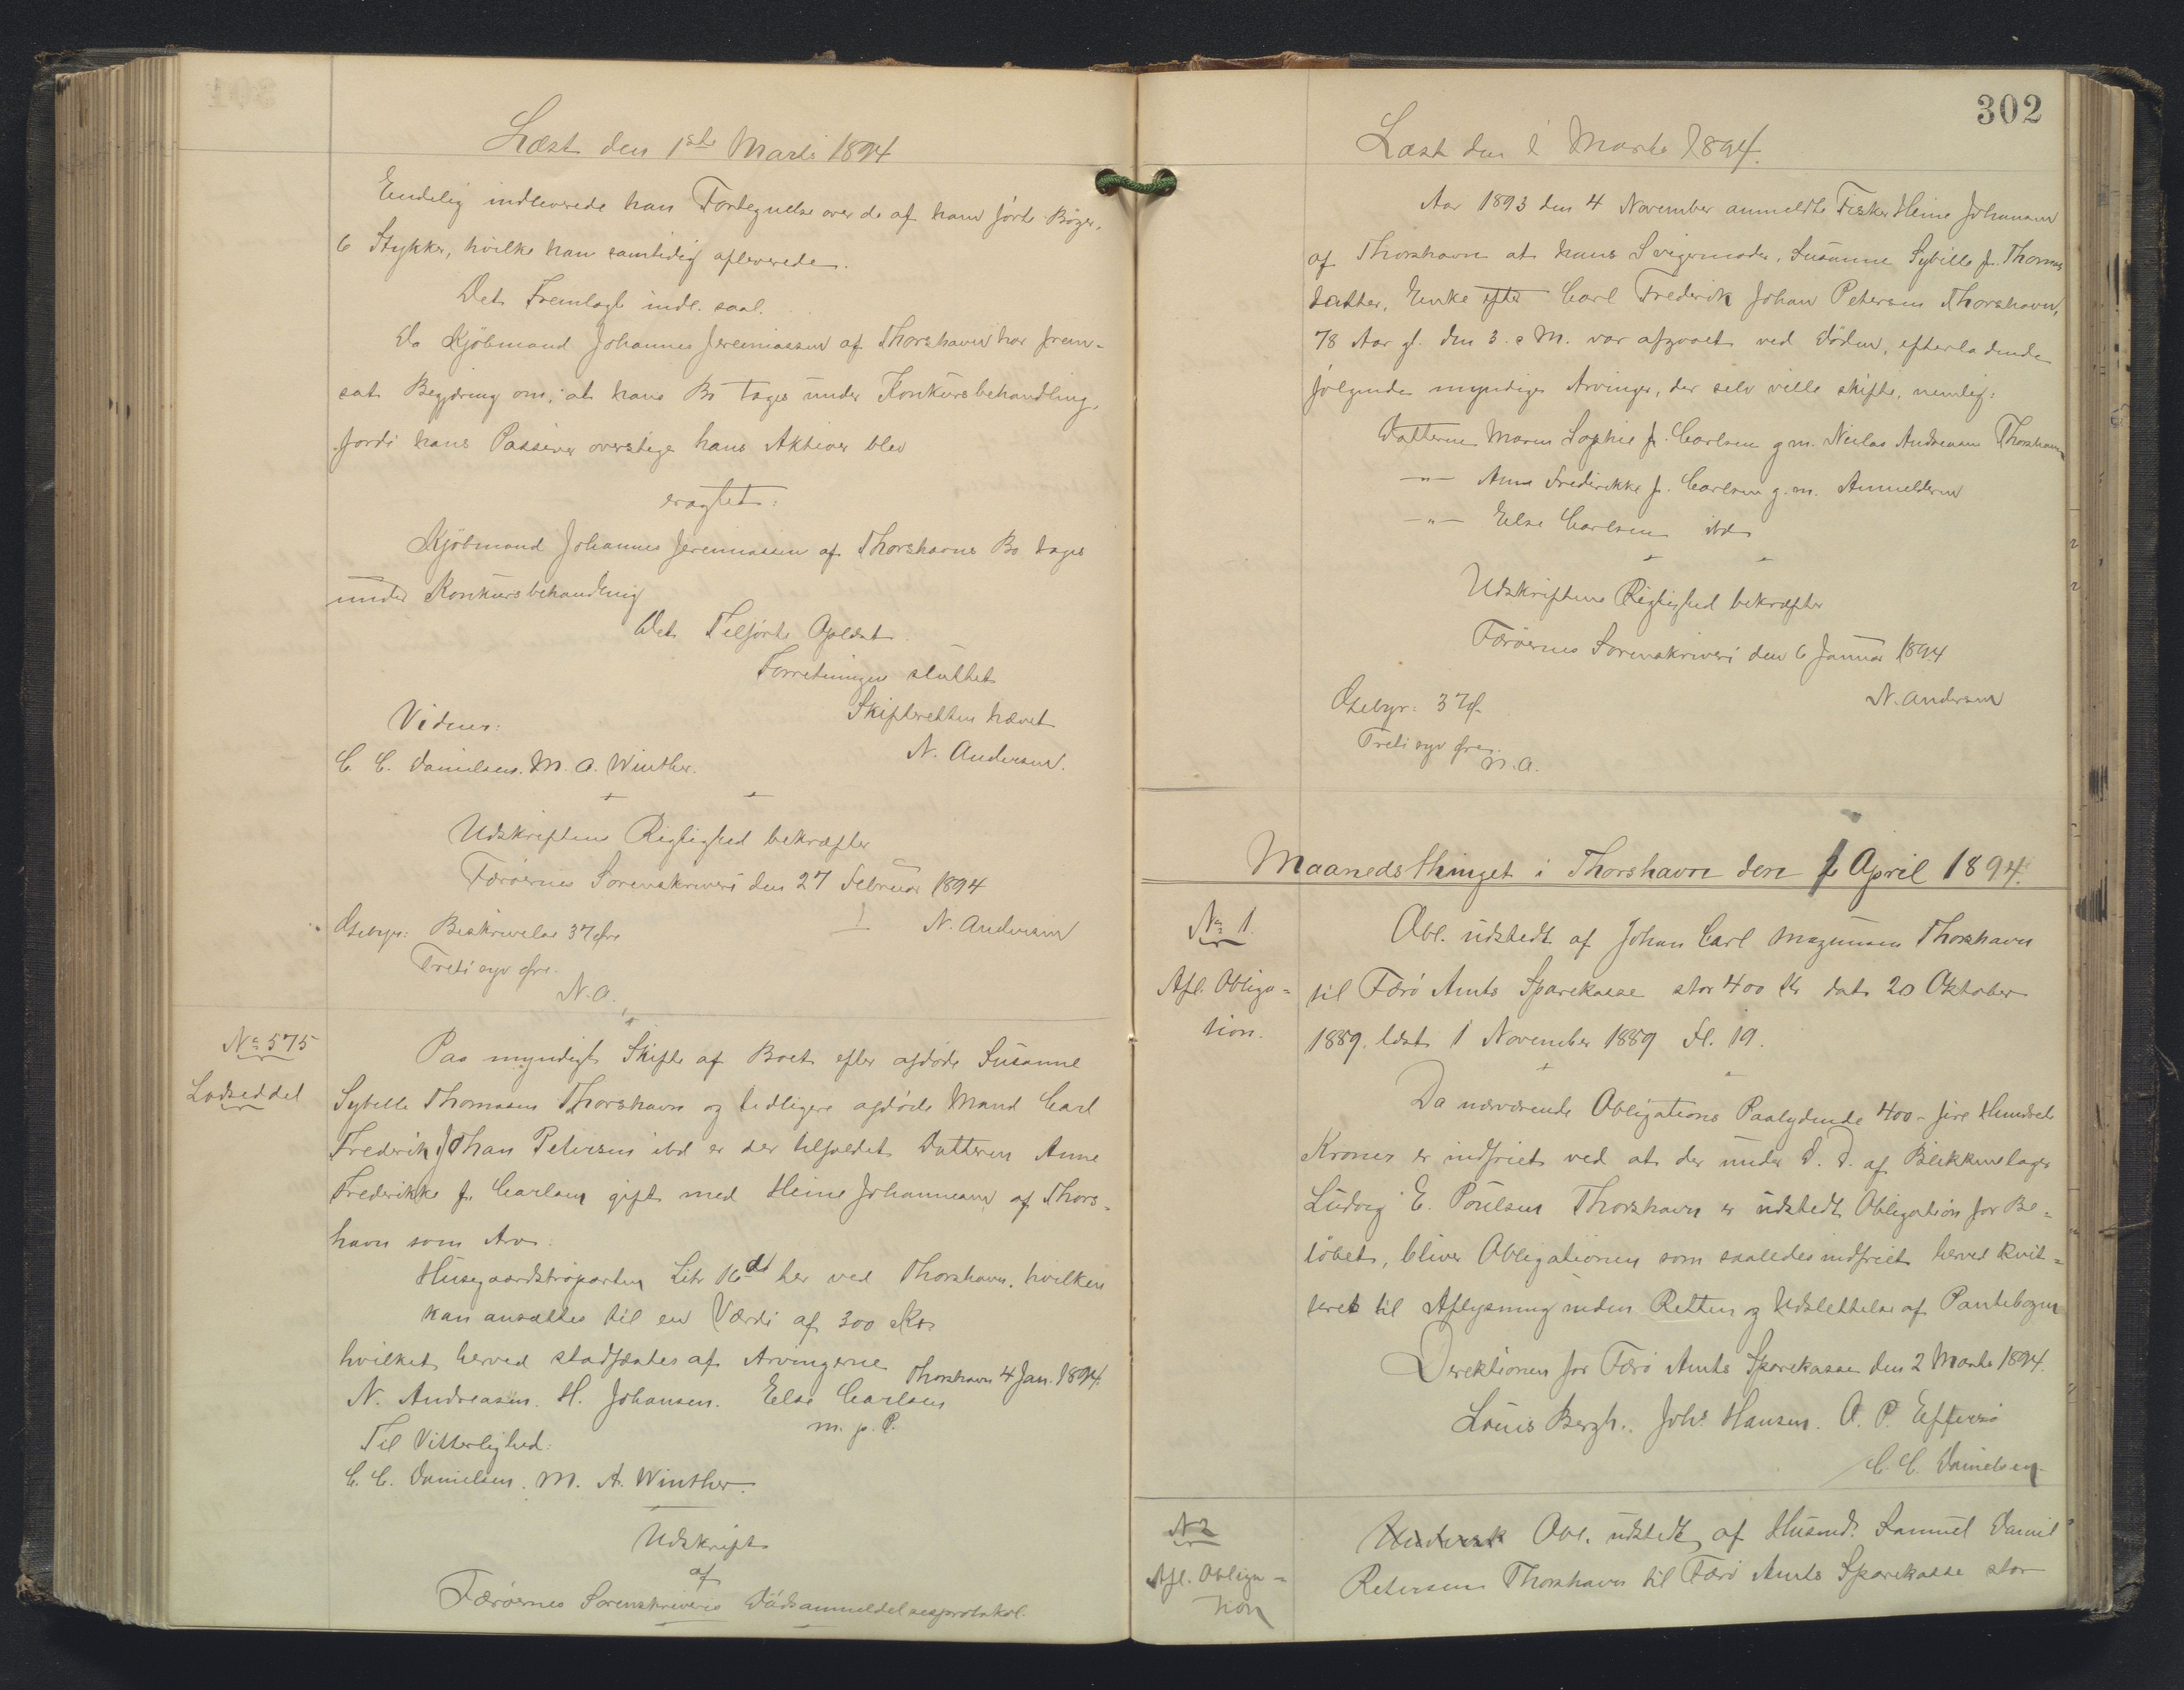 Læst den 1ste Marts 1894
Endelig indleverede han Fortegnelse over de af ham førte Bøger,
6 Stykker, hvilke han samtidig afleverede.
Det Fremlagte indl. saal.
Da Kjöbmand Johannes Jeremiassen af Thorshavn har frem=
sat Begjæring om, at hans Bo tages under Konkursbehandling,
fordi hans Passiver overstige hans Aktiver blev
eragtet:
Kjöbmand Johannes Jeremiassen af Thorshavns Bo tages
under Konkursbehandling
Det Tilførte Oplæst.
Forretningen sluttet
Skifteretten hævet
N. Andersen.
Vidner:
C. C. Danielsen. M. A. Winther.
Udskriftens Rigtighed bekræfter
Færøernes Sorenskriveri den 27 Februar 1894
N. Andersen
Gebyr: Beskrivelse 37 Øre
Treti syv Øre.
N. A.
No 575
Lodseddel
Paa myndigt Skifte af Boet efter afdøde Susanne
Sybille Thomasen Thorshavn og tidligere afdøde Mand Carl
Frederik Johan Petersen ibd er der tilfaldet Datteren Anne
Frederikke f. Carlsen gift med Heine Johannesen af Thors=
havn som Arv:
Husegaardstroparten Litr 16 d1 her ved Thorshavn, hvilken
kan ansættes til en Værdi af 300 Kr.
hvilket herved stadfæstes af Arvingerne
Thorshavn 4 Jan. 1894.
N. Andreasen. H. Johansen. Else Carlsen
m. p. P.
Til Vitterlighed:
C. C. Danielsen. M. A. Winther.
Udskrift
af
Færøernes Sorenskriveris Dødsanmeldelsesprotokol.
302
Læst den 1 Marts 1894.
Aar 1893 den 4 November anmeldte Fisker Heine Johansen
af Thorshavn at hans Svigermoder, Susanne Sybille f. Thomas
datter, Enke efter Carl Frederik Johan Petersen Thorshavn,
78 Aar gl. den 3. e M. var afgaaet ved Döden, efterladende
følgende myndige Arvinger, der selv ville skifte, nemlig:
Datteren Maren Sophie f. Carlsen g.m. Niclas Andreasen Thorshavn
-"- Anne Frederikke f. Carlsen g. m. Anmelderen
-"- Else Carlsen ibd
Udskriftens Rigtighed bekræfter
Færøernes Sorenskriveri den 6 Januar 1894
N. Andersen
Gebyr: 37 Ø.
Treti syv Øre.
N. A.
Maanedsthinget i Thorshavn den 1 April 1894.
No 1.
Afl. Obliga=
tion.
Obl. udstedt af Johan Carl Magnusen Thorshavn
til Færö Amts Sparekasse stor 400 Kr dat. 20 Oktober
1889. læst 1 November 1889 Fl. 19.
Da nærværende Obligations Paalydende 400 - fire Hundrede
Kroner er indfriet ved at der under D. D. af Blikkenslager
Ludvig E. Poulsen Thorshavn er udstedt Obligation for Be=
löbet, bliver Obligationen som saaledes indfriet herved kvit=
teret til Aflysning inden Retten og Udslettelse af Pantebogen
Direktionen for Færö Amts Sparekasse den 2 Marts 1894.
Louis Bergh. Johs Hansen. O. P. Effersö
C. C. Danielsen
N 2
Afl. Obliga=
tion
Obl. udstedt af Husmd. Samuel Daniel
Petersen Thorshavn til Færö Amts Sparekasse stor